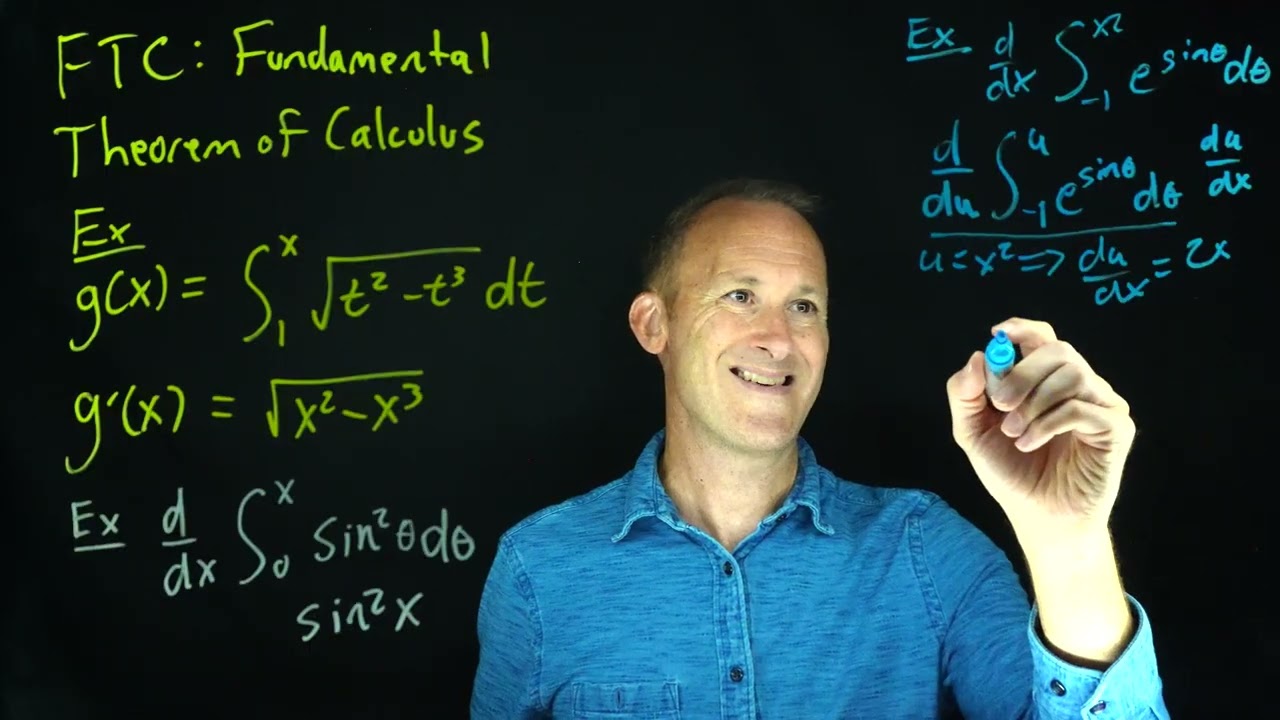 FTC: Fundamental
Theorem of Calculus
Ex
g(x) = ∫₁ˣ √(t² - t³) dt
g'(x) = √(x² - x³)
Ex d/dx ∫₀ˣ sin²θdθ
sin²x
Ex d/dx ∫₋₁^(x²) e^(sinθ) dθ
d/du ∫₋₁^u e^(sinθ) dθ du/dx
u = x² => du/dx = 2x